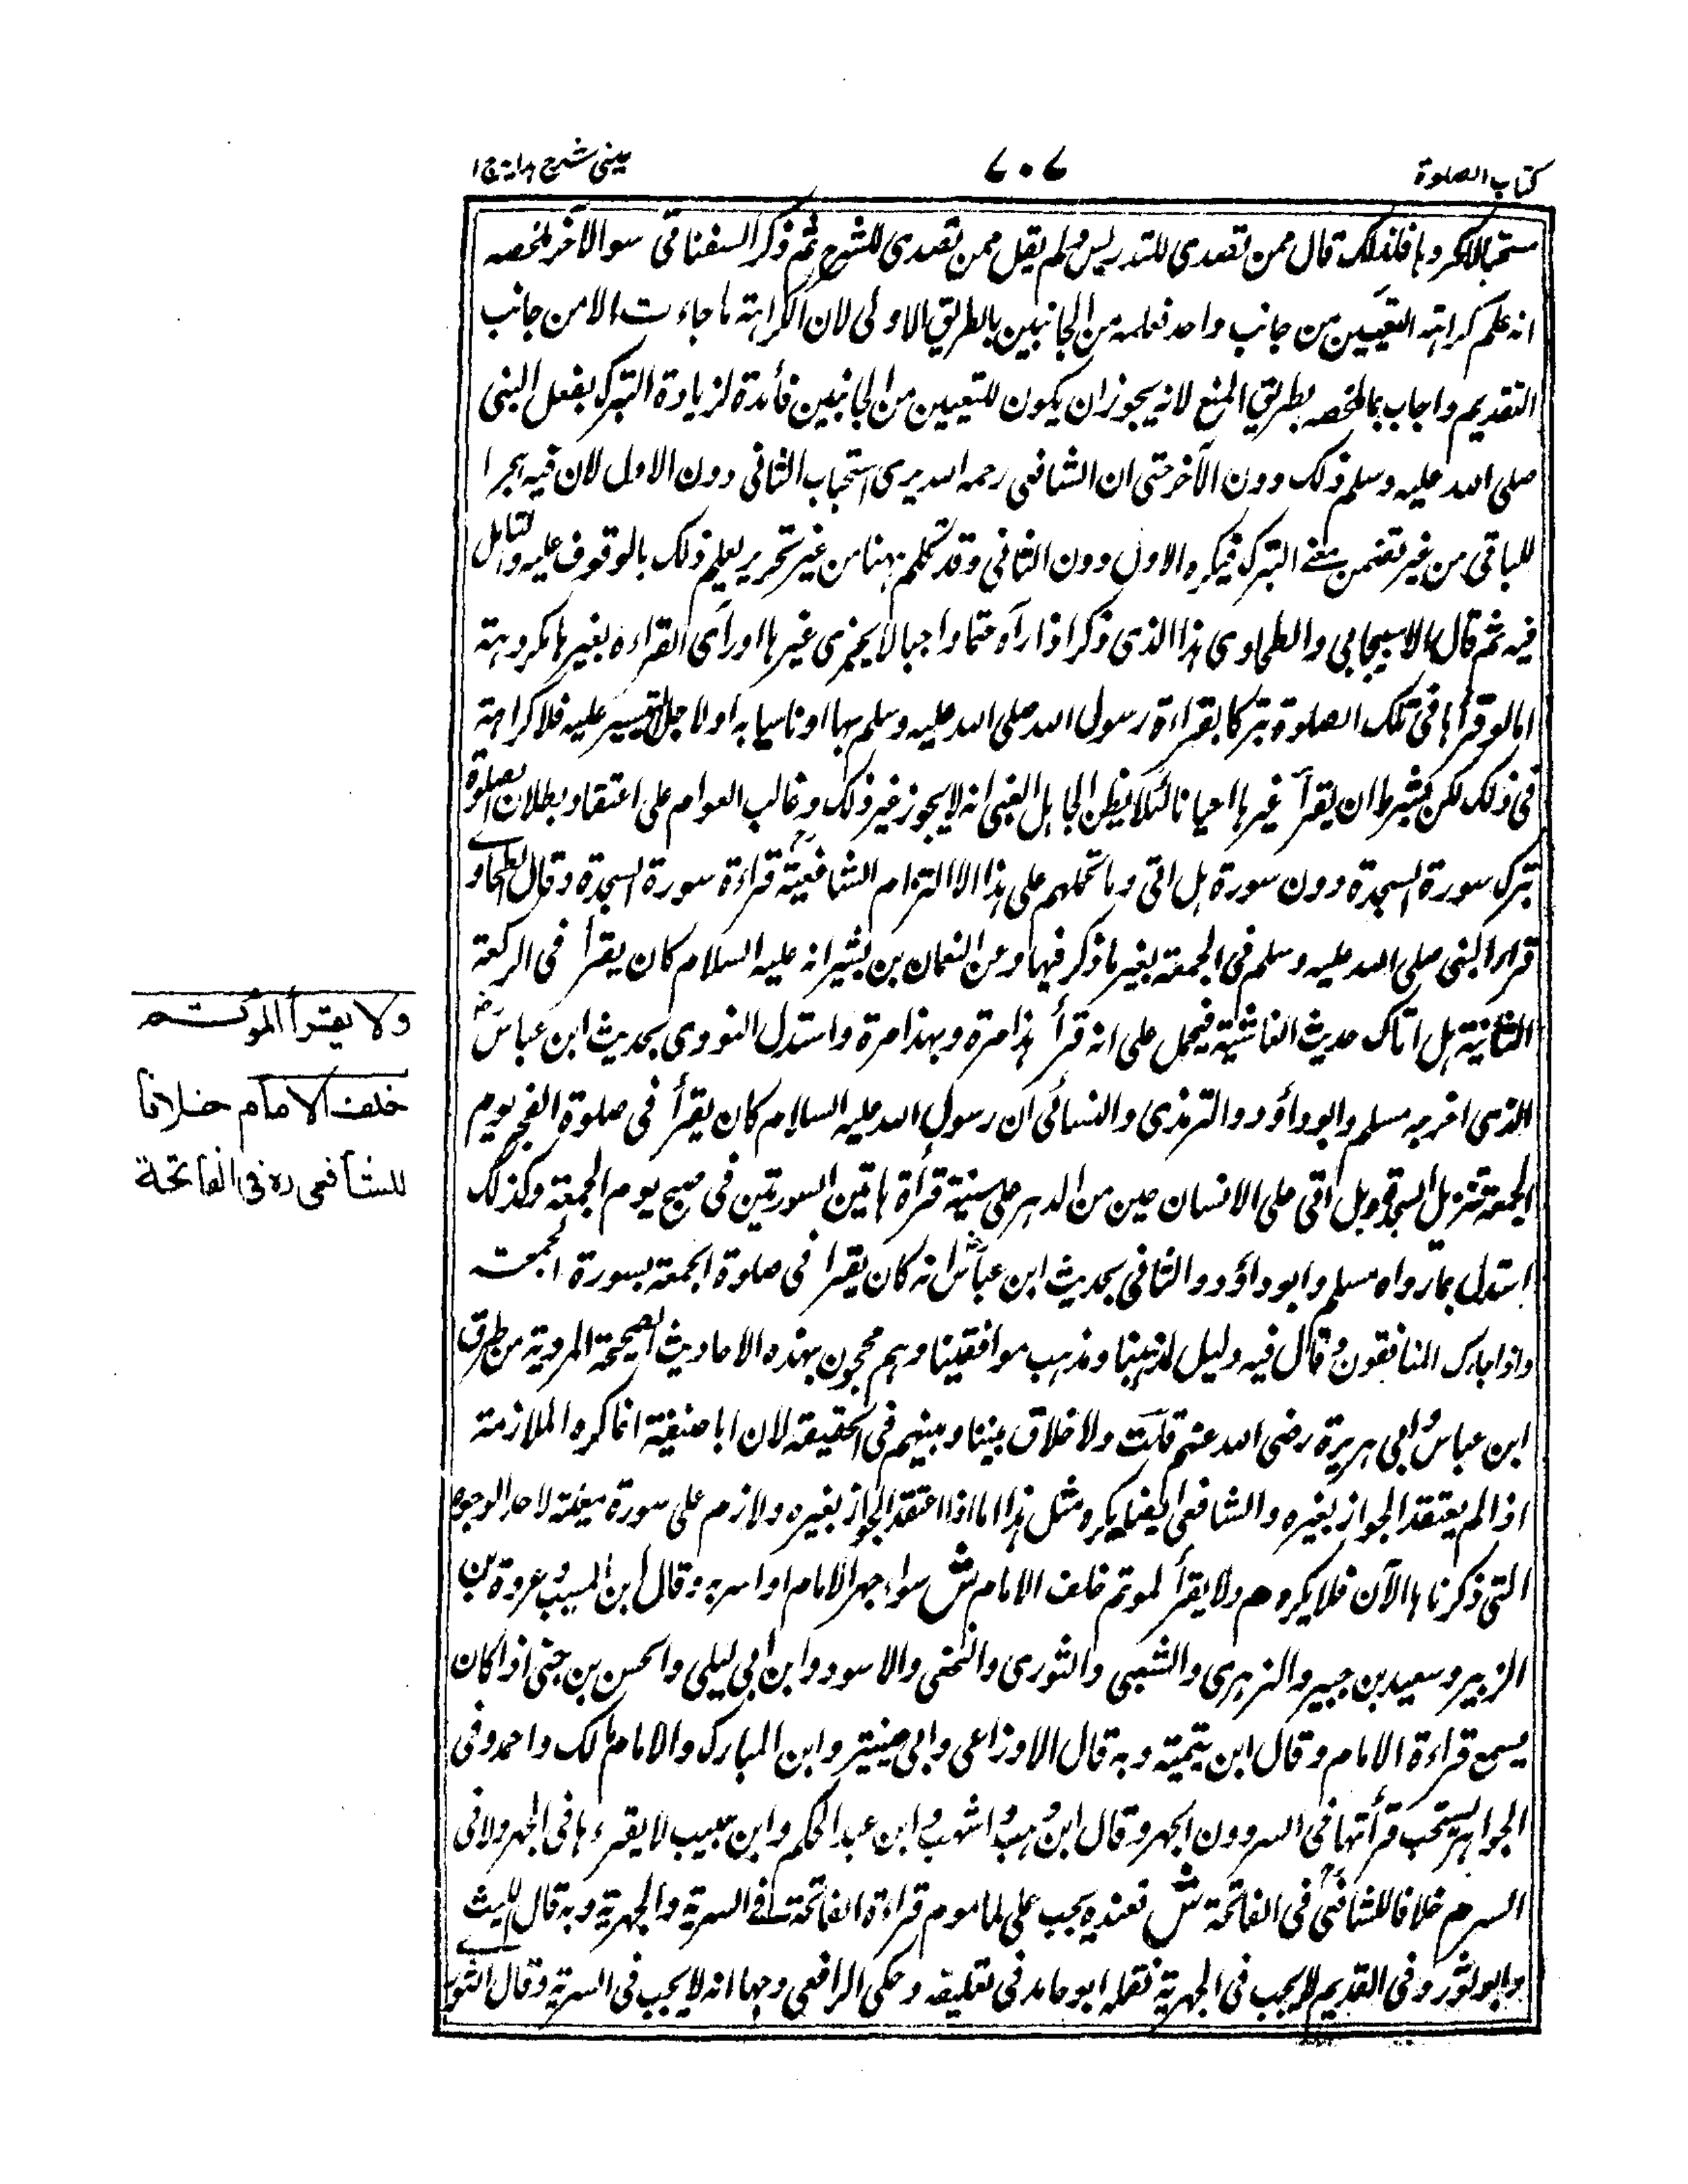 كتاب الصلوة
٧٠٧
عيني شرح هداية ج١
مستحبا لا مكروها فلذلك قال ممن تصدى للتدريس ولم يقل ممن تصدى للشرح ثم ذكر السغناقي سوالا آخر ملخصه
انه علم كراهة التعيين من جانب واحد فعلمه من الجانبين بالطريق الاولى لان الكراهة ما جاءت الا من جانب
التقديم واجاب بما ملخصه بطريق المنع لانه يجوز ان يكون للتعيين من الجانبين فائدة لزيادة التبرك بفعل النبي
صلى الله عليه وسلم ذلك دون الآخر حتى ان الشافعي رحمه الله يرى استحباب الثاني دون الاول لان فيه هجرا
للباقي من غير تضمن معنى التبرك فيكره الاول دون الثاني وقد تكلم ههنا من غير تحرير يعلم ذلك بالوقوف عليه والتامل
فيه ثم قال الاسبيجابي والطحاوي هذا الذي ذكر اذا رآه حتما واجبا لا يجزى غيرها او رأى القراءة بغيرها مكروهة
اما لو قرأها في تلك الصلوة تبركا بقراءة رسول الله صلى الله عليه وسلم بها او ناسيا به او لاجل التيسير عليه فلا كراهة
في ذلك لكن بشرط ان يقرأ غيرها احيانا لئلا يظن الجاهل الغبي انه لا يجوز غير ذلك وغالب العوام على اعتقاد بطلان الصلوة
بترك سورة السجدة دون سورة هل اتى وما تحملهم على هذا الا التزام الشافعية قراءة سورة السجدة وقال الطحاوي
قراء النبي صلى الله عليه وسلم في الجمعة بغير ما ذكر فيها وعن النعمان بن بشير انه عليه السلام كان يقرأ في الركعة
الثانية هل اتاك حديث الغاشية فيحمل على انه قرأ هذا مرة وبهذا مرة واستدل النووي بحديث ابن عباس رض
الذي اخرجه مسلم وابو داؤد والترمذي والنسائي ان رسول الله عليه السلام كان يقرأ في صلوة الفجر يوم
الجمعة تنزيل السجدة وهل اتى على الانسان حين من الدهر على سنية قرأة هاتين السورتين في صبح يوم الجمعة وكذلك
استدل بما رواه مسلم وابو داؤد والثاني بحديث ابن عباس رض انه كان يقرا في صلوة الجمعة بسورة الجمعة
واذا جاءك المنافقون وقال فيه دليل لمذهبنا ومذهب موافقينا وهم محجون بهذه الاحاديث الصحيحة المروية من طرق
ابن عباس وابي هريرة رضي الله عنهم قلت ولا خلاف بيننا وبينهم في الحقيقة لان ابا حنيفة انما كره الملازمة
اذا لم يعتقد الجواز بغيره والشافعي ايضا يكره مثل هذا اما اذا اعتقد الجواز بغيره ولازم على سورة معينة لاحد الوجوه
التي ذكرناها الآن فلا يكره م ولا يقرأ الموتم خلف الامام ش سواء جهر الامام او اسر به وقال ابن المسيب وعروة بن
الزبير وسعيد بن جبير والزهري والشعبي والثوري والنخعي والاسود وابن ابي ليلى والحسن بن حي اذا كان
يسمع قراءة الامام وقال ابن تيمية وبه قال الاوزاعي وابن المبارك والامام مالك واحمد وفي
الجواهر يستحب قرأتها في السر دون الجهر وقال ابن وهب واشهب وابن عبد الحكم وابن حبيب لا يقرءها في الجهر ولا في
السر م خلافا للشافعي رح في الفاتحة ش فعنده يجب على الماموم قراءة الفاتحة في السرية والجهرية وبه قال الليث
وابو ثور وفي القديم لا يجب في الجهرية نقله ابو حامد في تعليقه وحكى الرافعي وجها انه لا يجب في السرية وقال الثوري
ولا يقرأ المؤتم
خلف الامام خلافا
للشافعي ره في الفاتحة